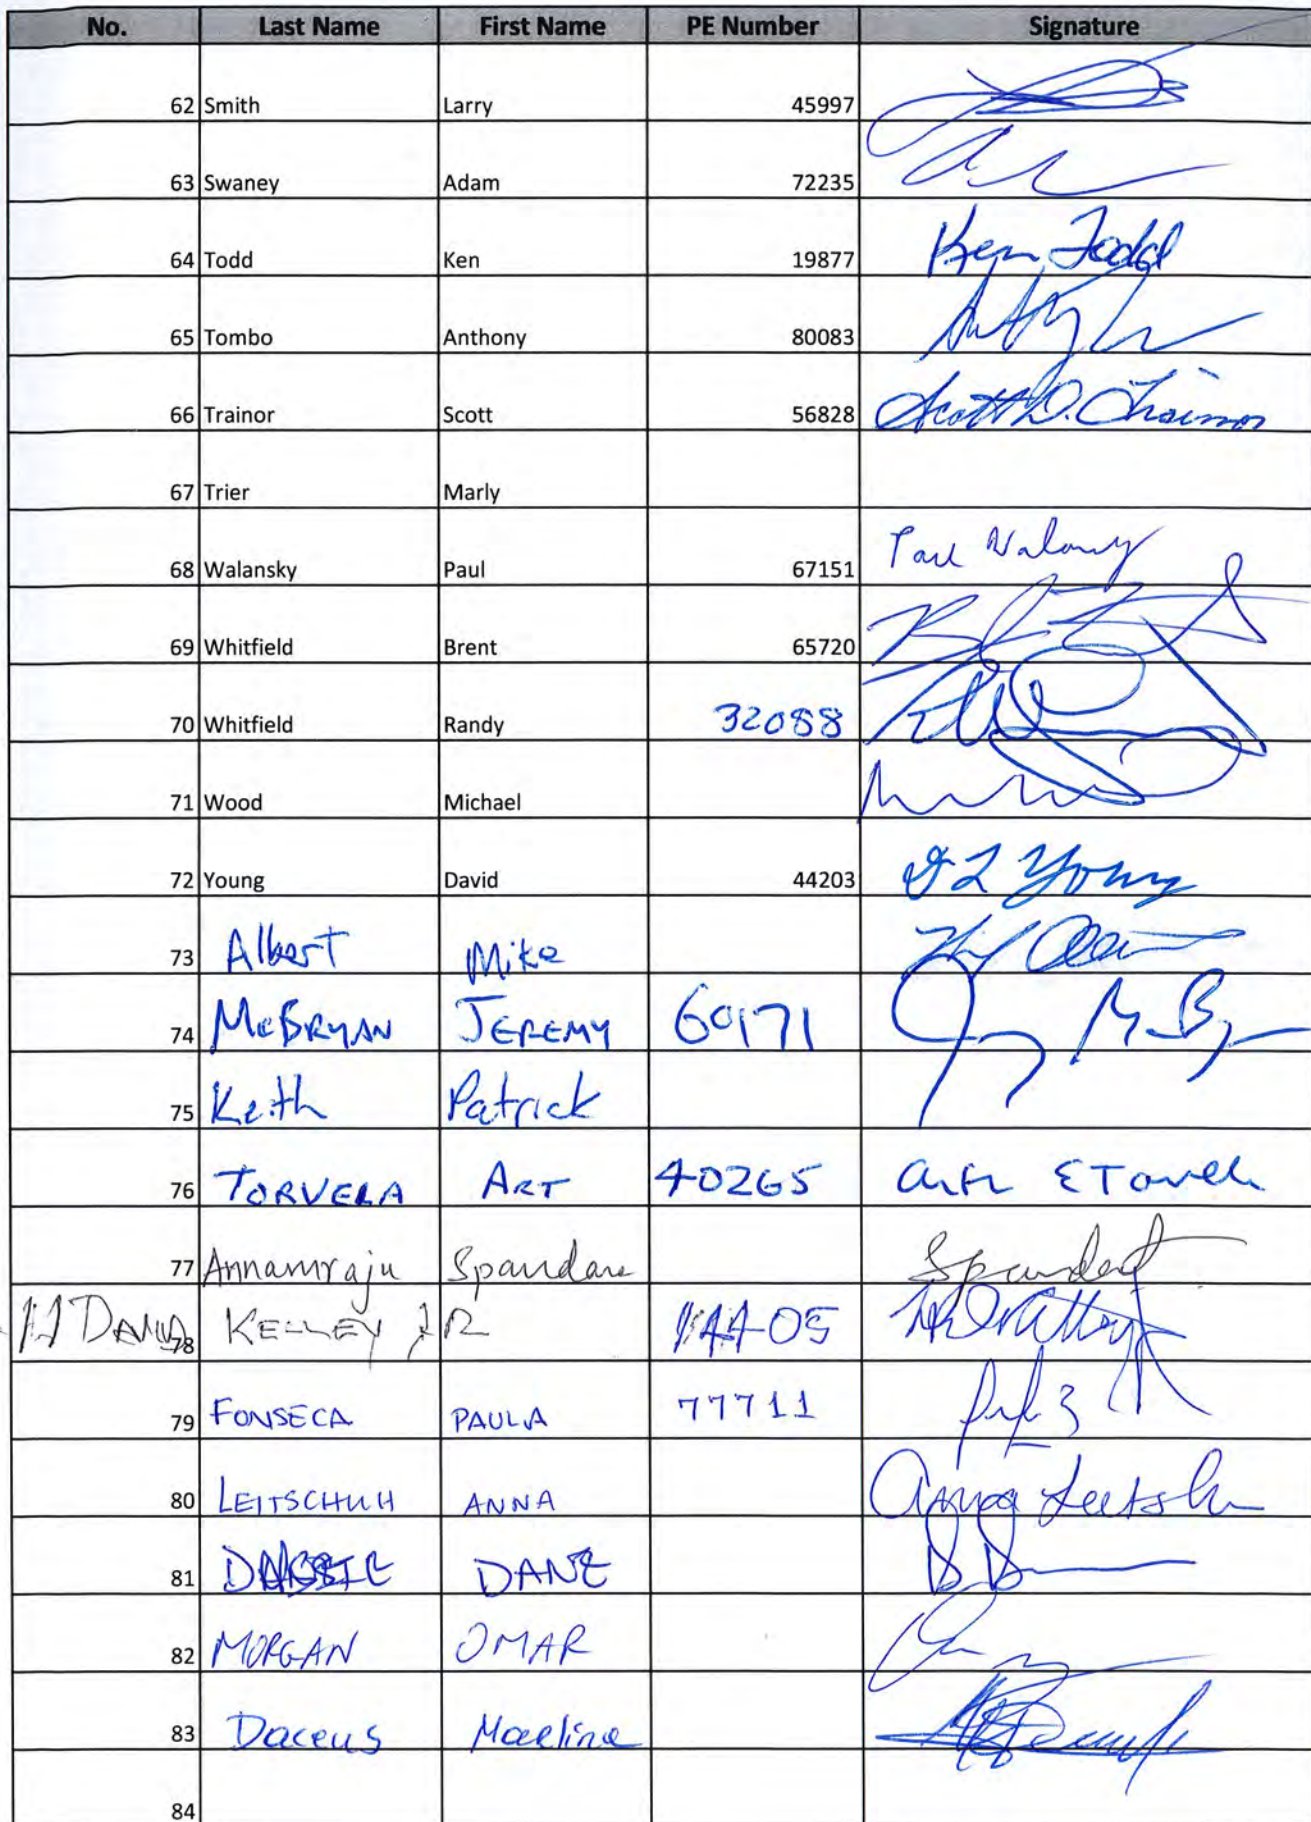 No. Last Name First Name PE Number Signature
62 Smith Larry 45997
63 Swaney Adam 72235
64 Todd Ken 19877 Ken Todd
65 Tombo Anthony 80083
66 Trainor Scott 56828 Scott D. Trainor
67 Trier Marly
68 Walansky Paul 67151 Paul Walansky
69 Whitfield Brent 65720
70 Whitfield Randy 32088
71 Wood Michael
72 Young David 44203 D L Young
73 Albert Mike
74 McBRYAN JEREMY 60171
75 Keith Patrick
76 TORVELA ART 40265
77 Annamraju Spandana
78 KELLEY JR
79 FONSECA PAULA 77711
80 LEITSCHUH ANNA Anna Leitschuh
81 DANE
82 MORGAN OMAR
83 Daceus Marline
84